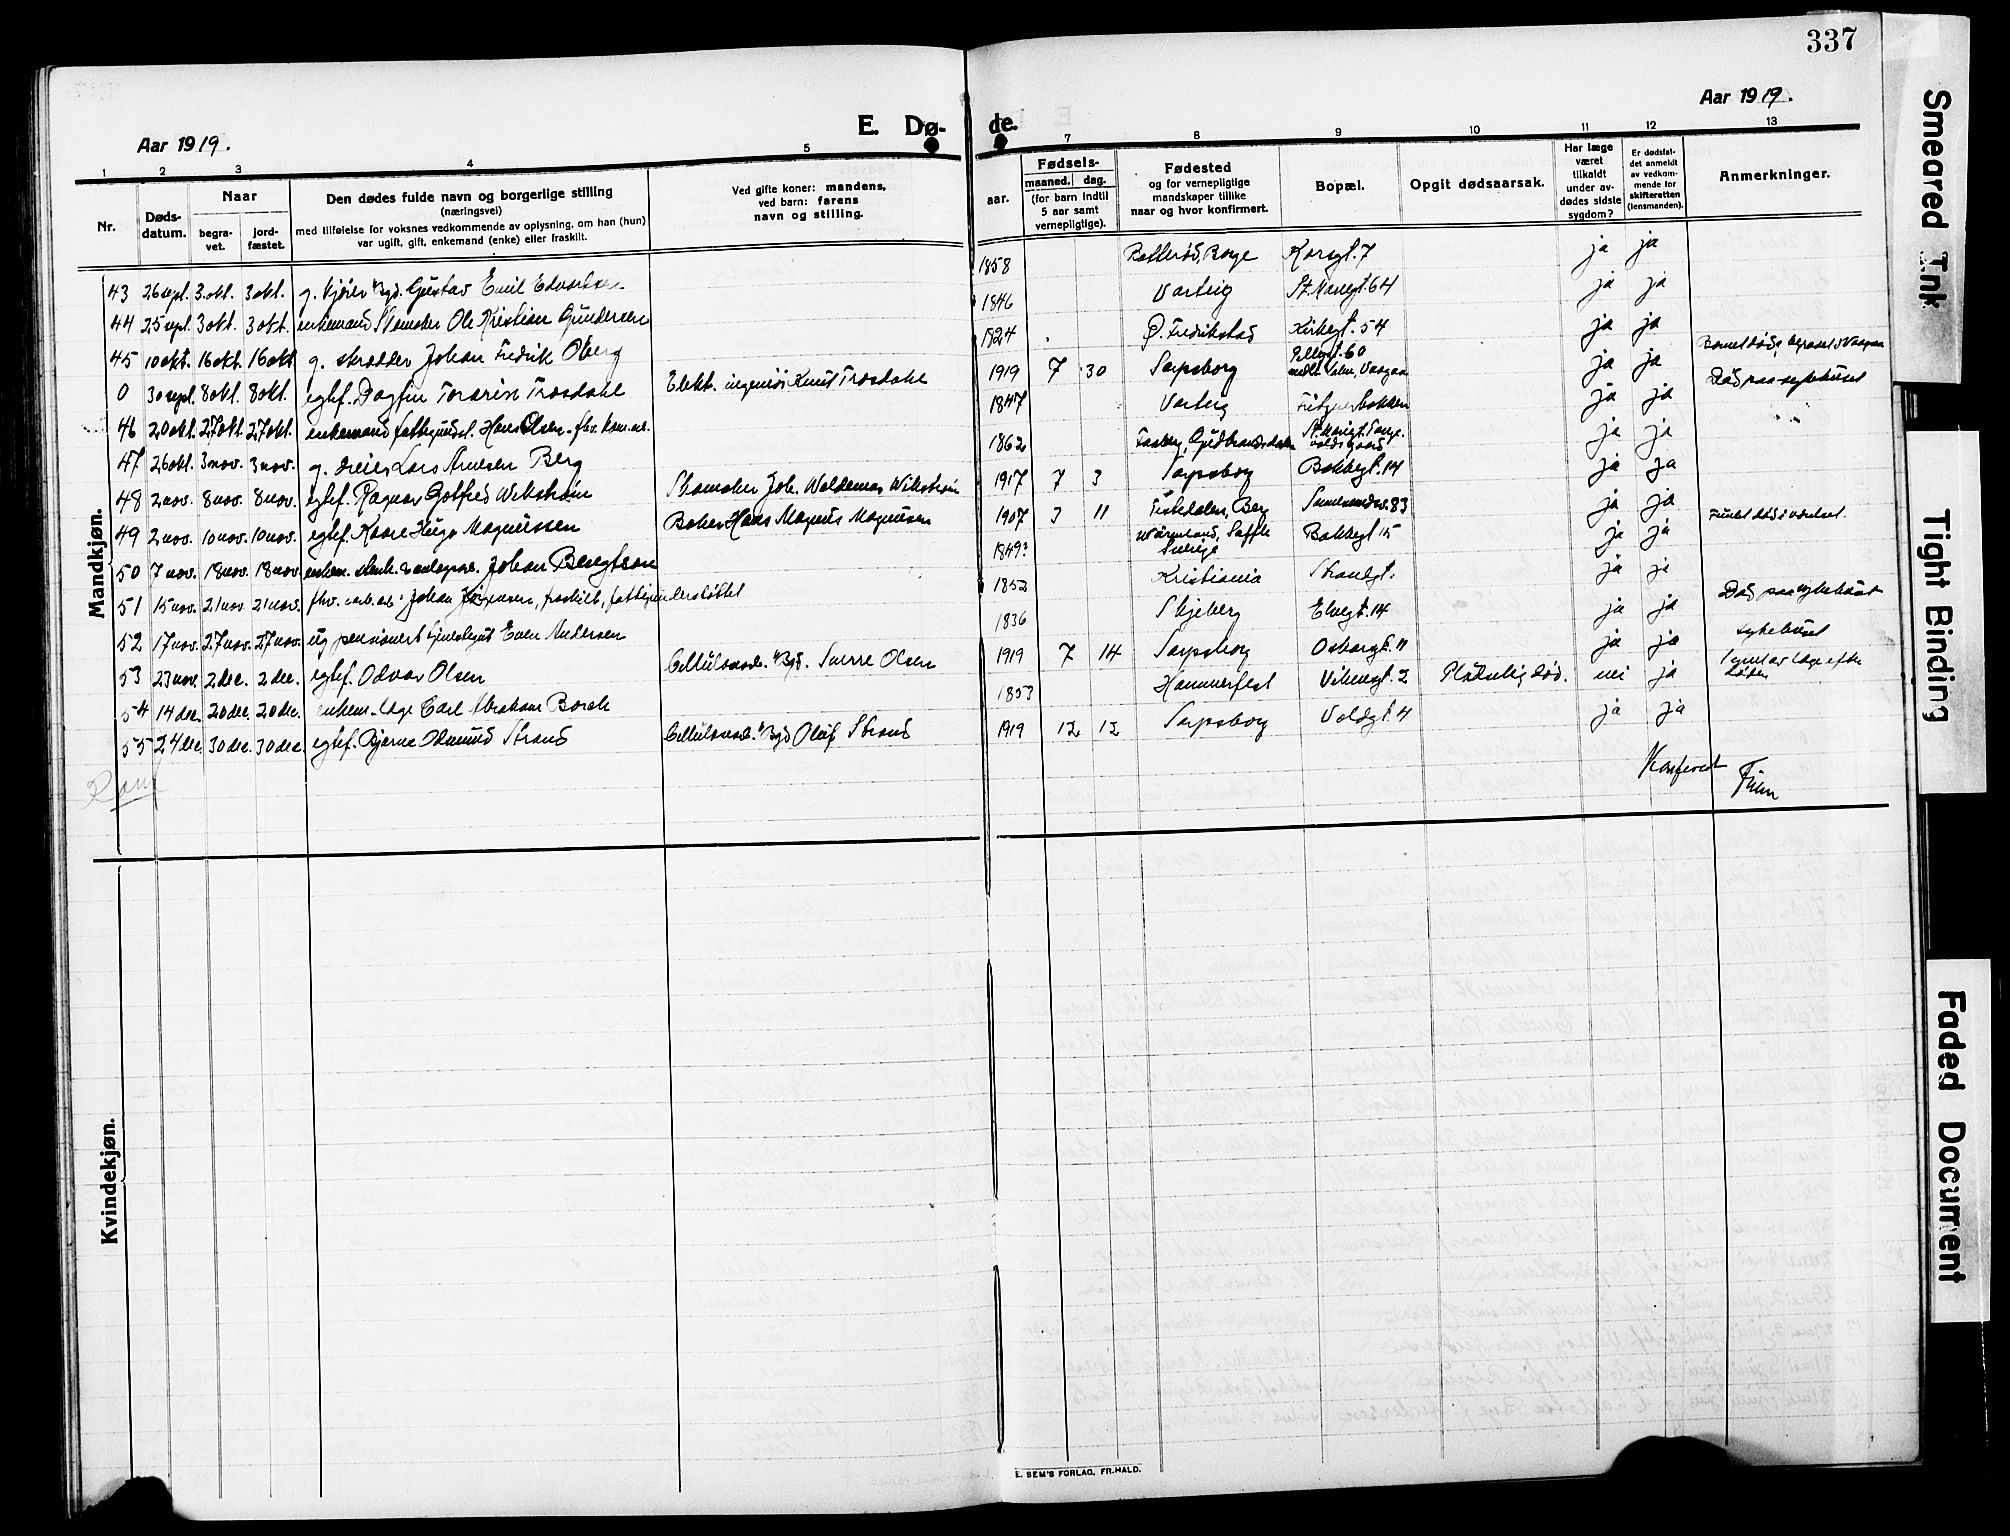 337
Aar 1919.
E. Dø-
de.
Aar 1919.
1 2 3 4 5
7 8 9 10 11 12 13
Nr.
Døds-
datum.
Naar
begra-
vet.
jord-
fæstet.
Den dødes fulde navn og borgerlige stilling
(næringsvei)
med tilføielse for voksnes vedkommende av oplysning, om han (hun)
var ugift, gift, enkemand (enke) eller fraskilt.
Ved gifte koner: mandens,
ved barn: farens
navn og stilling.
Fødsels-
aar.
maaned. dag.
(for barn indtil
5 aar samt
vernepligtige).
Fødested
og for vernepligtige
mandskaper tillike
naar og hvor konfirmert.
Bopæl.
Opgit dødsaarsak.
Har læge
været
tilkaldt
under av-
dødes sidste
sygdom?
Er dødsfal-
det anmeldt
av vedkom-
mende for
skifteretten
(lensmanden).
Anmerkninger.
Mandkjøn.
43 26 sept. 3. okt. 3 okt. g. kjører Gustav Emil 1858 Borge Korsgt. 7 ja ja
44 25 sept. 3 okt. 3 okt. enkemand Skomaker Ole Kristian Gundersen 1846 Varteig St. Mariegt. 64 ja ja
45 10 okt. 16 okt. 16 okt. g. skrædder Johan Fredrik Oberg 1824 Ø. Fredrikstad Kirkegt. 54 ja ja
0 30 sept. 8 okt. 8 okt. egtef. Dagfin Torarin Trosdahl Elekt. ingeniør Knut Trosdahl 1919 7 30 Sarpsborg Pellygt. 60 ja ja
46 20 okt. 27 okt. 27 okt. enkemand Hans Olsen 1847 Varteig ja ja Død paa sykehuset
47 26 okt. 3 nov. 3 nov. g. dreier Lars Arnesen Berg 1862 Faaberg, Gudbrandsdalen St. Mariegt. ja ja
48 2 nov. 8 nov. 8 nov. egtef. Ragnar Gotfred Wikstrøm Skomaker Joh. Waldemar Wikstrøm 1917 7 3 Sarpsborg Bakkegt. 14 ja ja
49 2 nov. 10 nov. 10 nov. egtef. Kaare Hugo Magnussen Baker Hans Magnus Magnusen 1907 3 11 Tistedalen, Berg 83 ja ja
50 7 nov. 18 nov. 18 nov. enkem. Johan Bengtson 1849? Wärmland, Saffle Sverige Bakkegt 15 ja ja
51 15 nov. 21 nov. 21 nov. fhv. arb. Johan Jørgensen, fraskilt, fattigunderstøttet 1852 Kristiania Strandgt. ja ja
52 17 nov. 27 nov. 27 nov. ug pensionert Even Andersen 1836 Skjeberg Elvegt. 14 ja ja Død paa sykehuset
53 23 nov. 2 dec. 2 dec. egtef. Odvar Olsen Cellulosearb. Sverre Olsen 1919 7 14 Sarpsborg Oskarsgt. 11 ja ja sykehuset
54 14 dec. 20 dec. 20 dec. enkem. læge Carl Abraham Borch 1853 Hammerfest 2 Pludselig død. nei ja
55 24 dec. 30 dec. 30 dec. egtef. Bjarne Odmund Strand Cellulosearb. Oluf Strand 1919 12 12 Sarpsborg Voldgt. 4 ja ja
Konferert
Kvindekjøn.
E. SEM'S FORLAG, FR.HALD.
Smeared Ink
Tight Binding
Faded Document